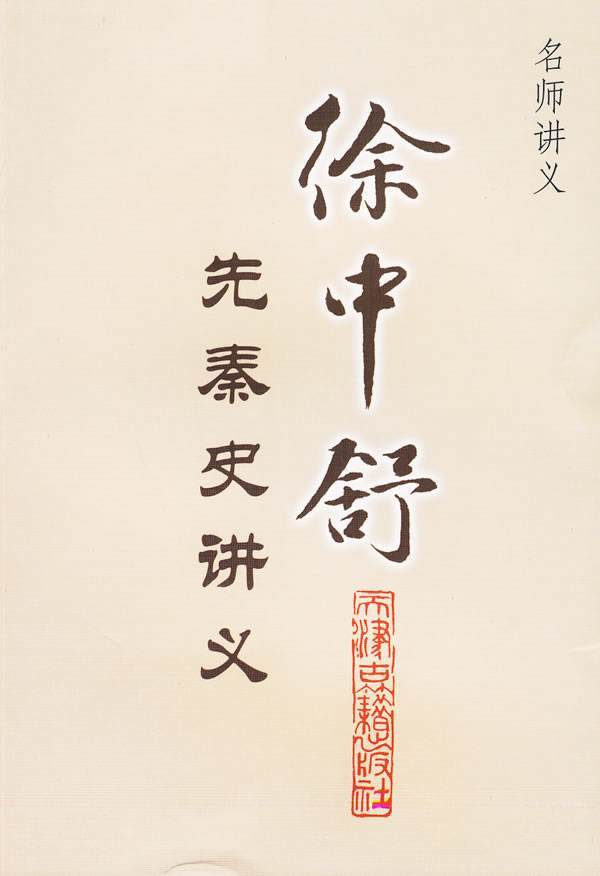 名师讲义
徐中舒
先秦史讲义
天津古籍出版社